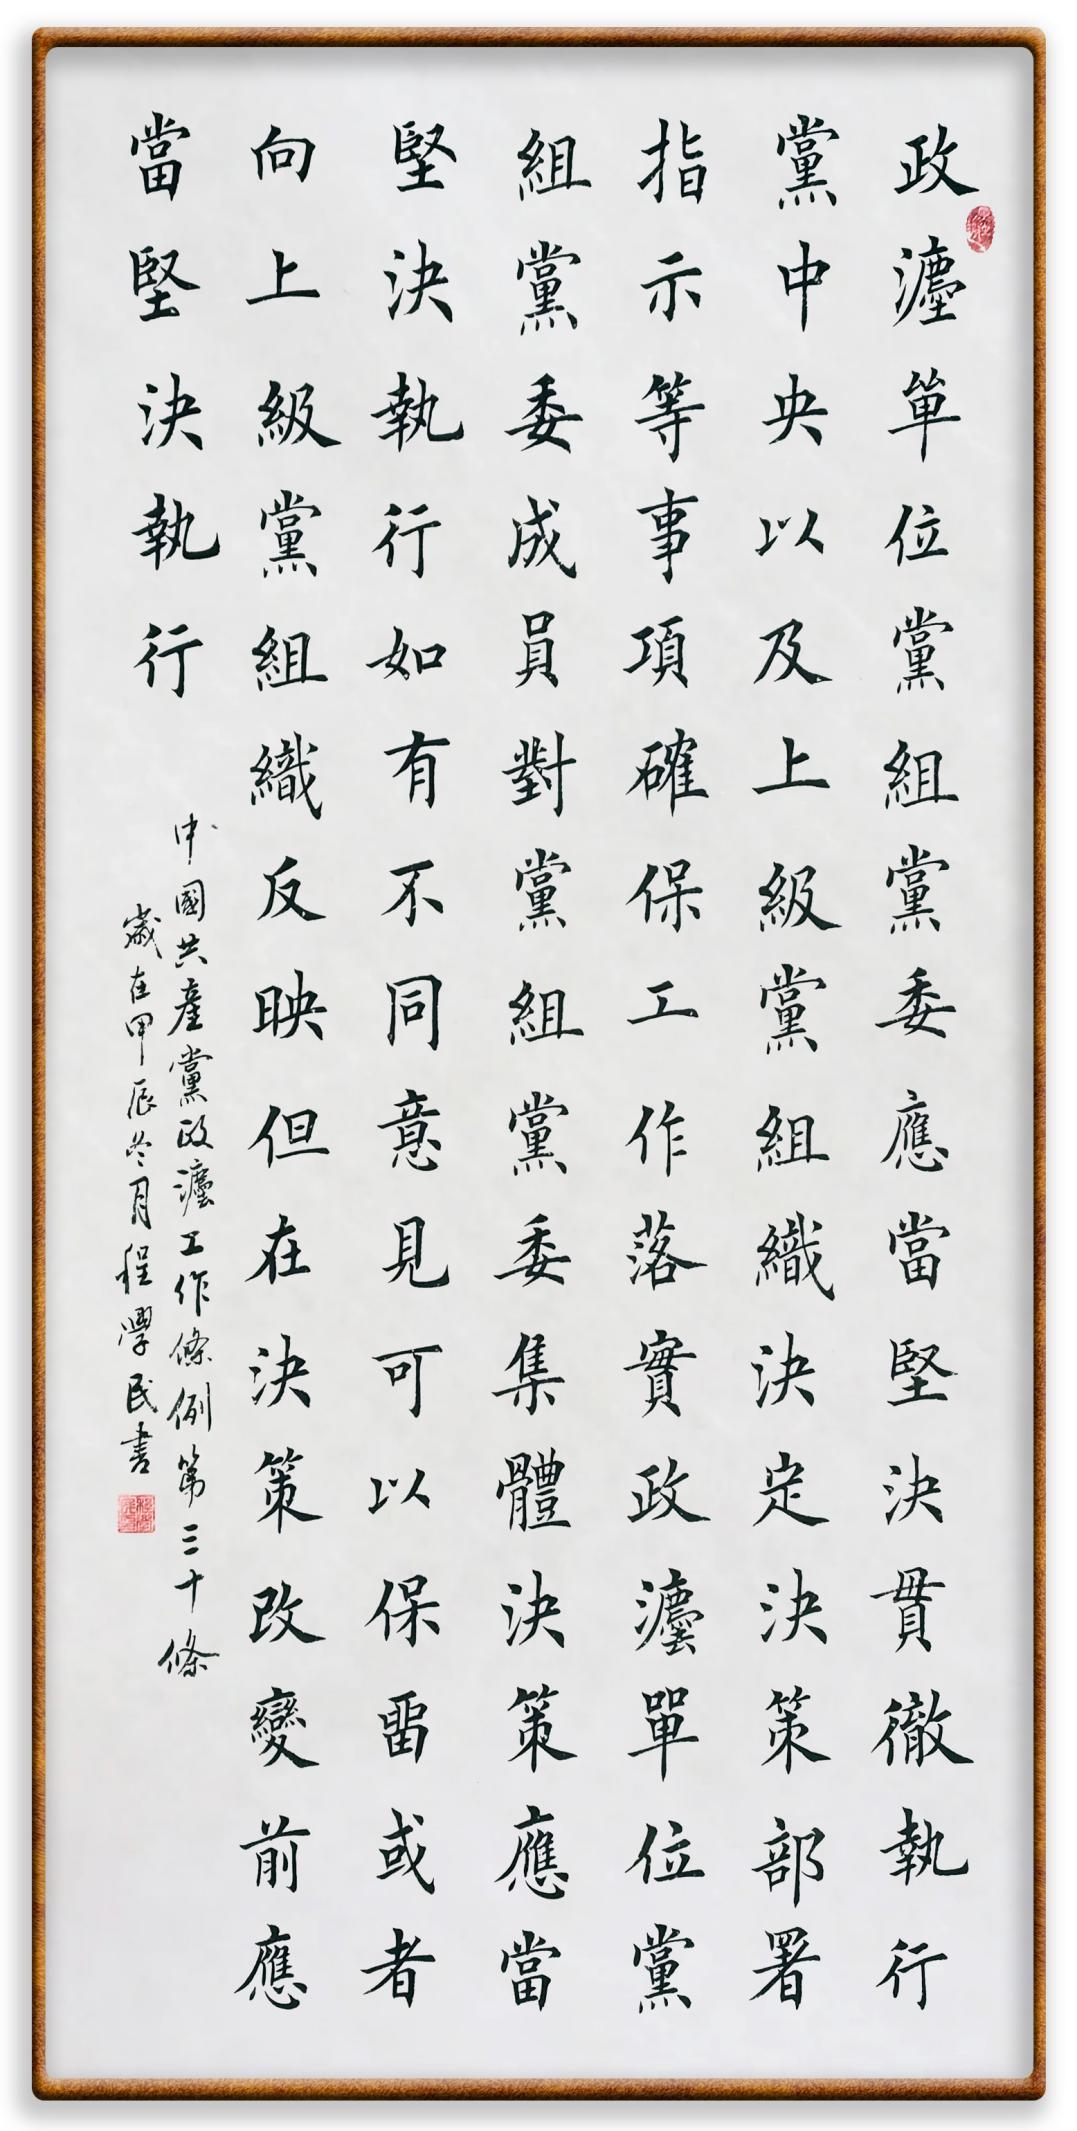 政灋單位黨組黨委應當堅決貫徹執行
黨中央以及上級黨組織決定決策部署
指示等事項確保工作落實政灋單位黨
組黨委成員對黨組黨委集體決策應當
堅決執行如有不同意見可以保畱或者
向上級黨組織反映但在決策改變前應
當堅決執行
中國共產黨政灋工作條例第三十條
歲在甲辰冬月程學民書